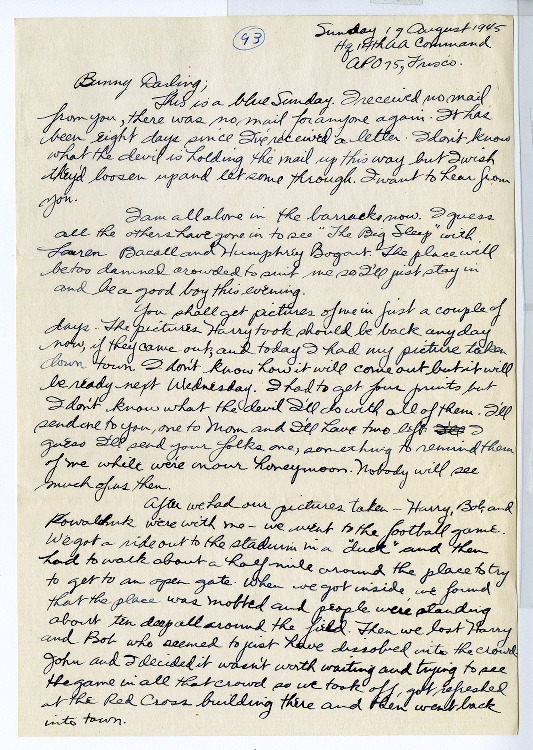 93
Sunday 19 August 1945
Hq 14th AA Command
APO 75, Frisco.
Bunny Darling;
This is a blue Sunday. I received no mail
from you, there was no mail for anyone again. It has
been eight days since I've received a letter. I don't know
what the devil is holding the mail up this way but I wish
they'd loosen up and let some through. I want to hear from
you.
I am all alone in the barracks now. I guess
all the others have gone in to see "The Big Sleep" with
Lauren Bacall and Humphrey Bogart. The place will
be too damned crowded to suit me so I'll just stay in
and be a good boy this evening.
You shall get pictures of me in just a couple of
days. The pictures Harry took should be back any day
now, if they came out, and today I had my picture taken
down town. I don't know how it will come out but it will
be ready next Wednesday. I had to get four prints but
I don't know what the devil I'll do with all of them. I'll
send one to you, one to Mom and I'll have two left. I
guess I'll send your folks one, something to remind them
of me while were in our honeymoon. Nobody will see
much of us then.
After we had our pictures taken - Harry, Bob, and
Kowalchuk were with me - we went to the football game.
We got a ride out to the stadium in a "duck" and then
had to walk about a half mile around the place to try
to get to an open gate. When we got inside, we found
that the place was mobbed and people were standing
about ten deep all around the field. Then we lost Harry
and Bob who seemed to just have dissolved into the crowd
John and I decided it wasn't worth waiting and trying to see
the game in all that crowd so we took off, got refreshed
at the Red Cross building there and then went back
into town.